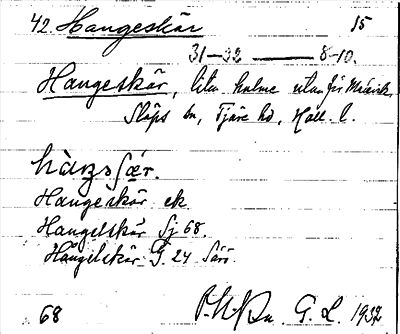 42. Hangeskär 15
31–32 — 8–10.
Hangeskär, liten holme utanför
Släps sn, Fjäre hd, Hall. l.
Hangeskär ek.
Hangelskär Sj 68.
Hangelskär G. 24 Särö.
68 G. L. 1932